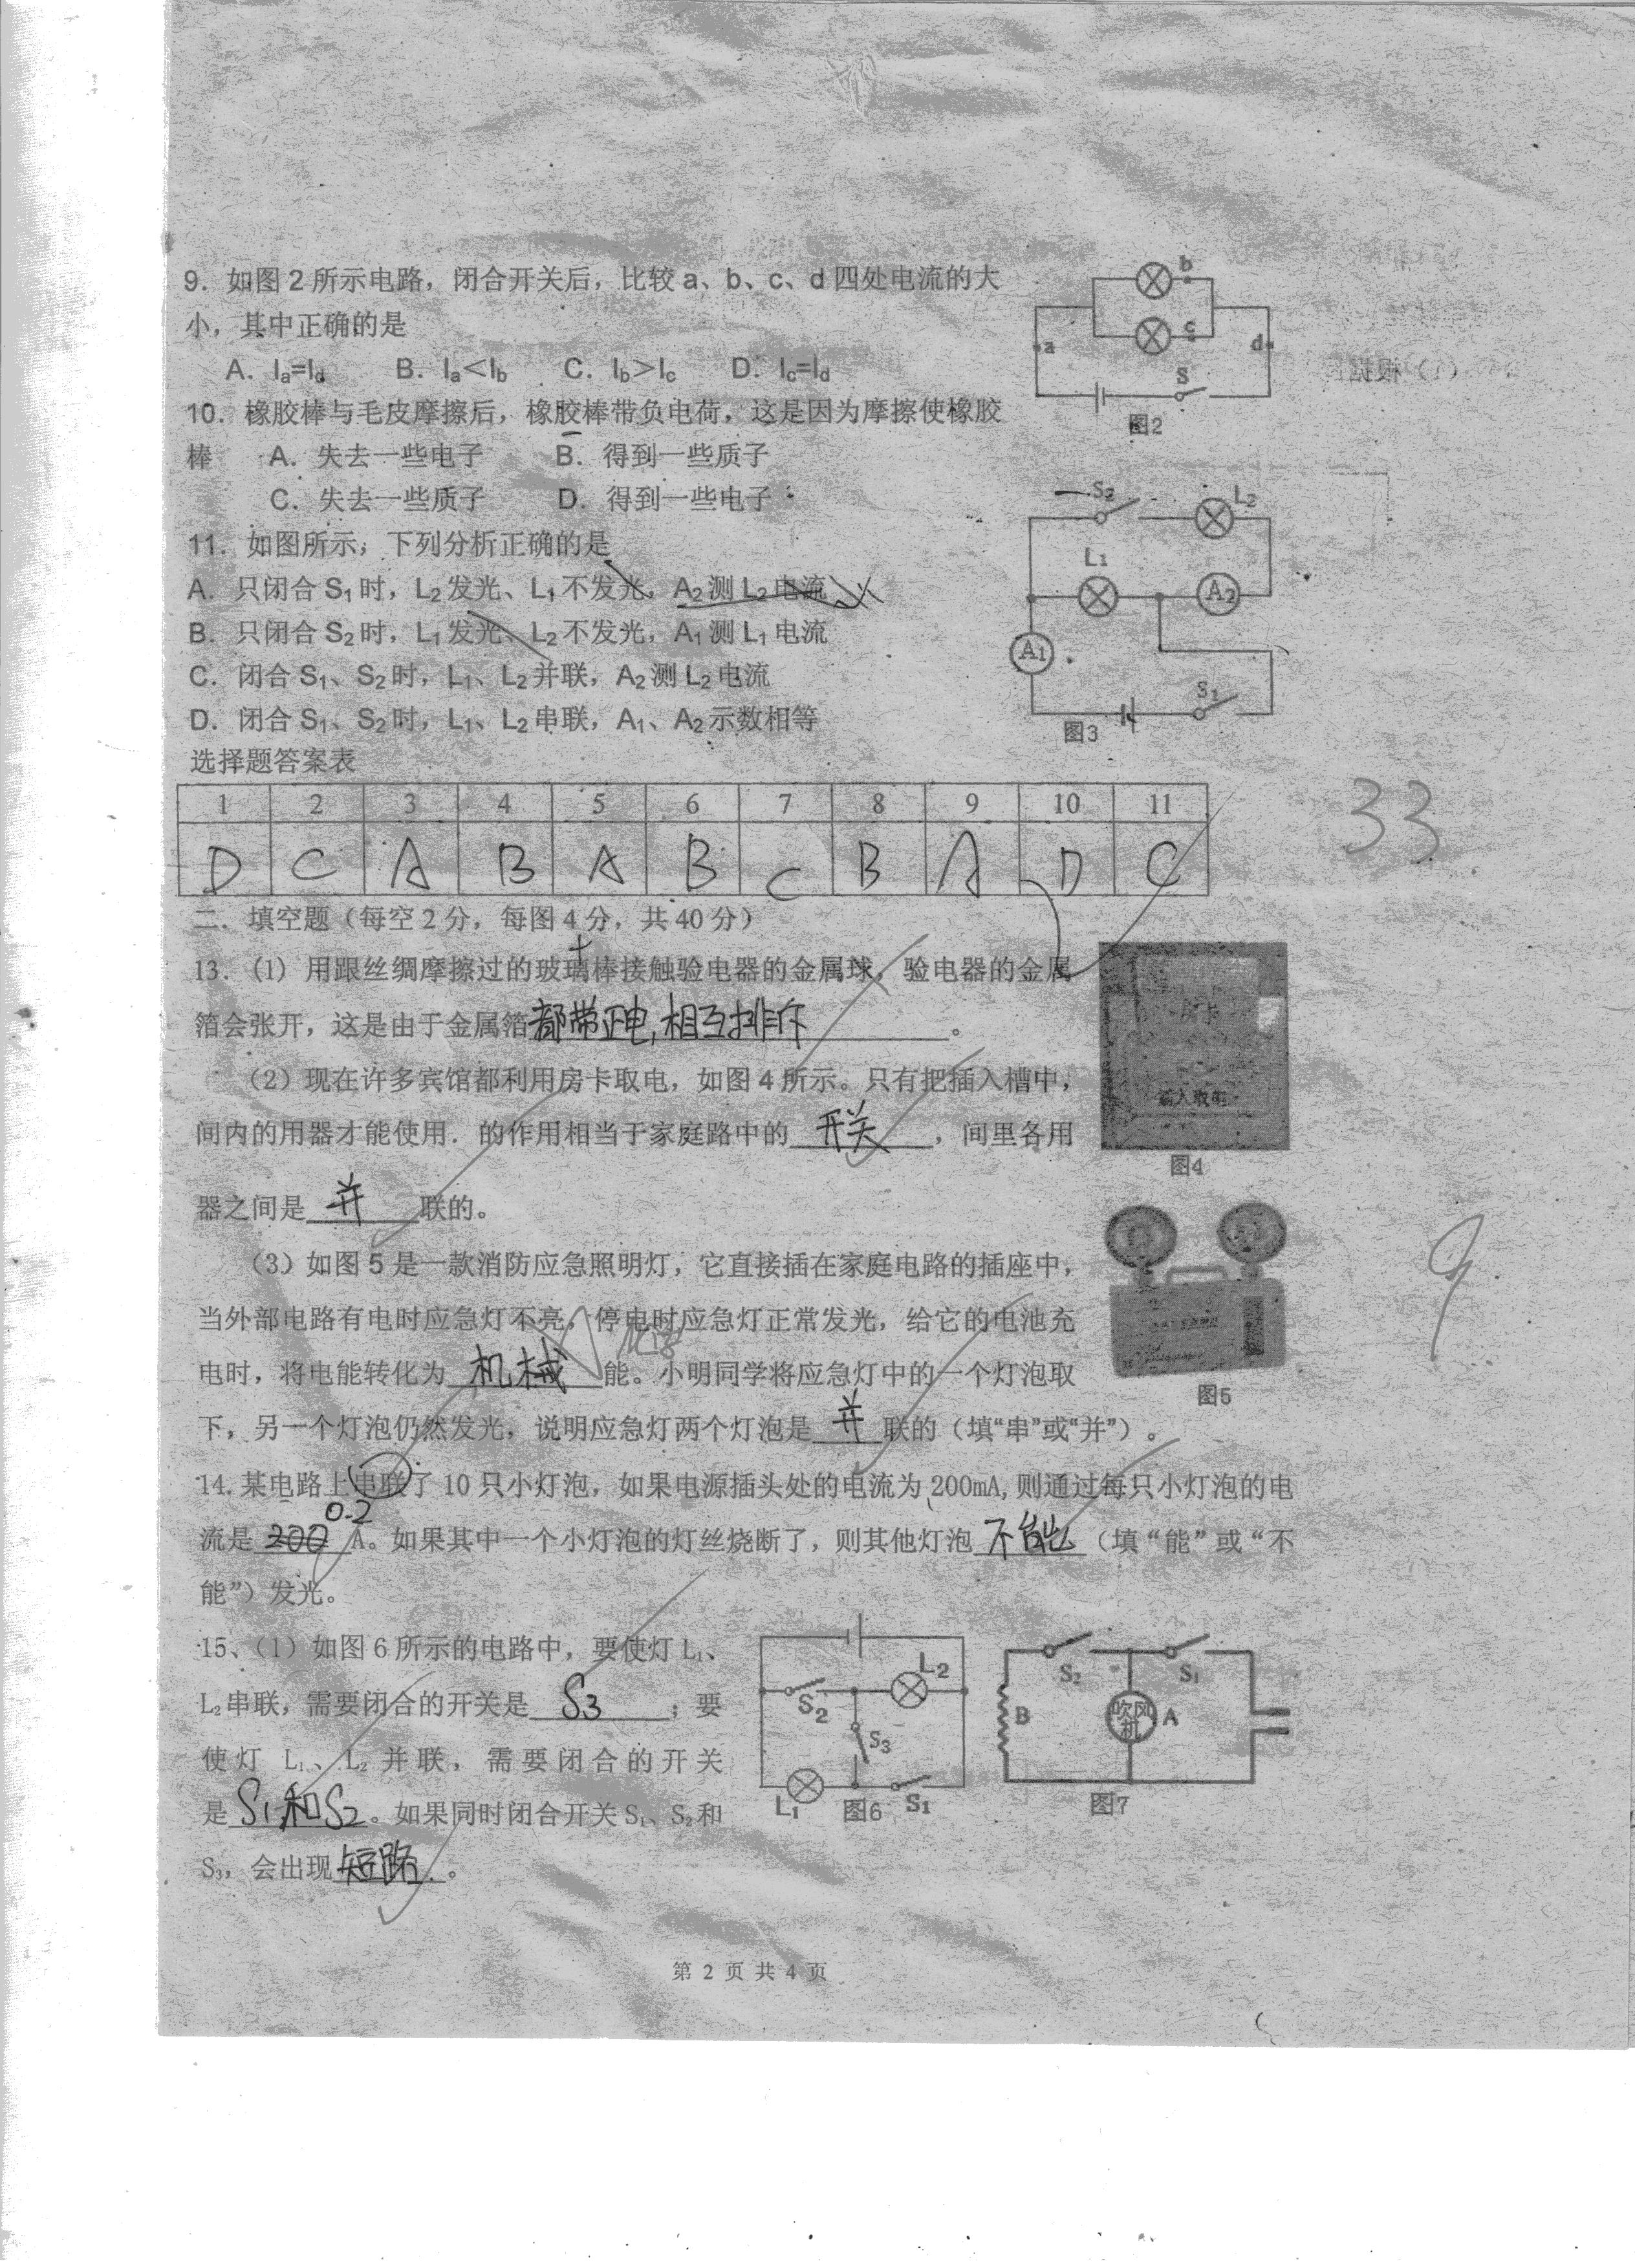 9．如图2所示电路，闭合开关后，比较a、b、c、d四处电流的大
小，其中正确的是
A．Ia=Id B．Ia＜Ib C．Ib＞Ic D．Ic=Id
b
c
a
d
S
图2
10．橡胶棒与毛皮摩擦后，橡胶棒带负电荷，这是因为摩擦使橡胶
棒 A．失去一些电子 B．得到一些质子
C．失去一些质子 D．得到一些电子
11．如图所示，下列分析正确的是
A．只闭合S1时，L2发光、L1不发光，A2测L2电流
B．只闭合S2时，L1发光、L2不发光，A1测L1电流
C．闭合S1、S2时，L1、L2并联，A2测L2电流
D．闭合S1、S2时，L1、L2串联，A1、A2示数相等
S2
L2
L1
A2
A1
S1
图3
选择题答案表
1 2 3 4 5 6 7 8 9 10 11
D C A B A B C B A D C
33
二．填空题（每空2分，每图4分，共40分）
13．(1) 用跟丝绸摩擦过的玻璃棒接触验电器的金属球，验电器的金属
箔会张开，这是由于金属箔都带正电,相互排斥。
（2）现在许多宾馆都利用房卡取电，如图4所示。只有把插入槽中，
间内的用器才能使用．的作用相当于家庭路中的开关，间里各用
器之间是并联的。
插入取电
图4
（3）如图5是一款消防应急照明灯，它直接插在家庭电路的插座中，
当外部电路有电时应急灯不亮，停电时应急灯正常发光，给它的电池充
化学
电时，将电能转化为机械能。小明同学将应急灯中的一个灯泡取
下，另一个灯泡仍然发光，说明应急灯两个灯泡是并联的（填“串”或“并”）。
图5
9
14.某电路上串联了10只小灯泡，如果电源插头处的电流为200mA,则通过每只小灯泡的电
0.2
流是200A。如果其中一个小灯泡的灯丝烧断了，则其他灯泡不能（填“能”或“不
能”）发光。
15、（1）如图6所示的电路中，要使灯L1、
L2串联，需要闭合的开关是S3；要
使灯L1、L2并联，需要闭合的开关
是S1和S2。如果同时闭合开关S1、S2和
S3，会出现短路。
L2
S2
S3
L1
S1
图6
S2
S1
B
吹风
机
A
图7
第 2 页 共 4 页